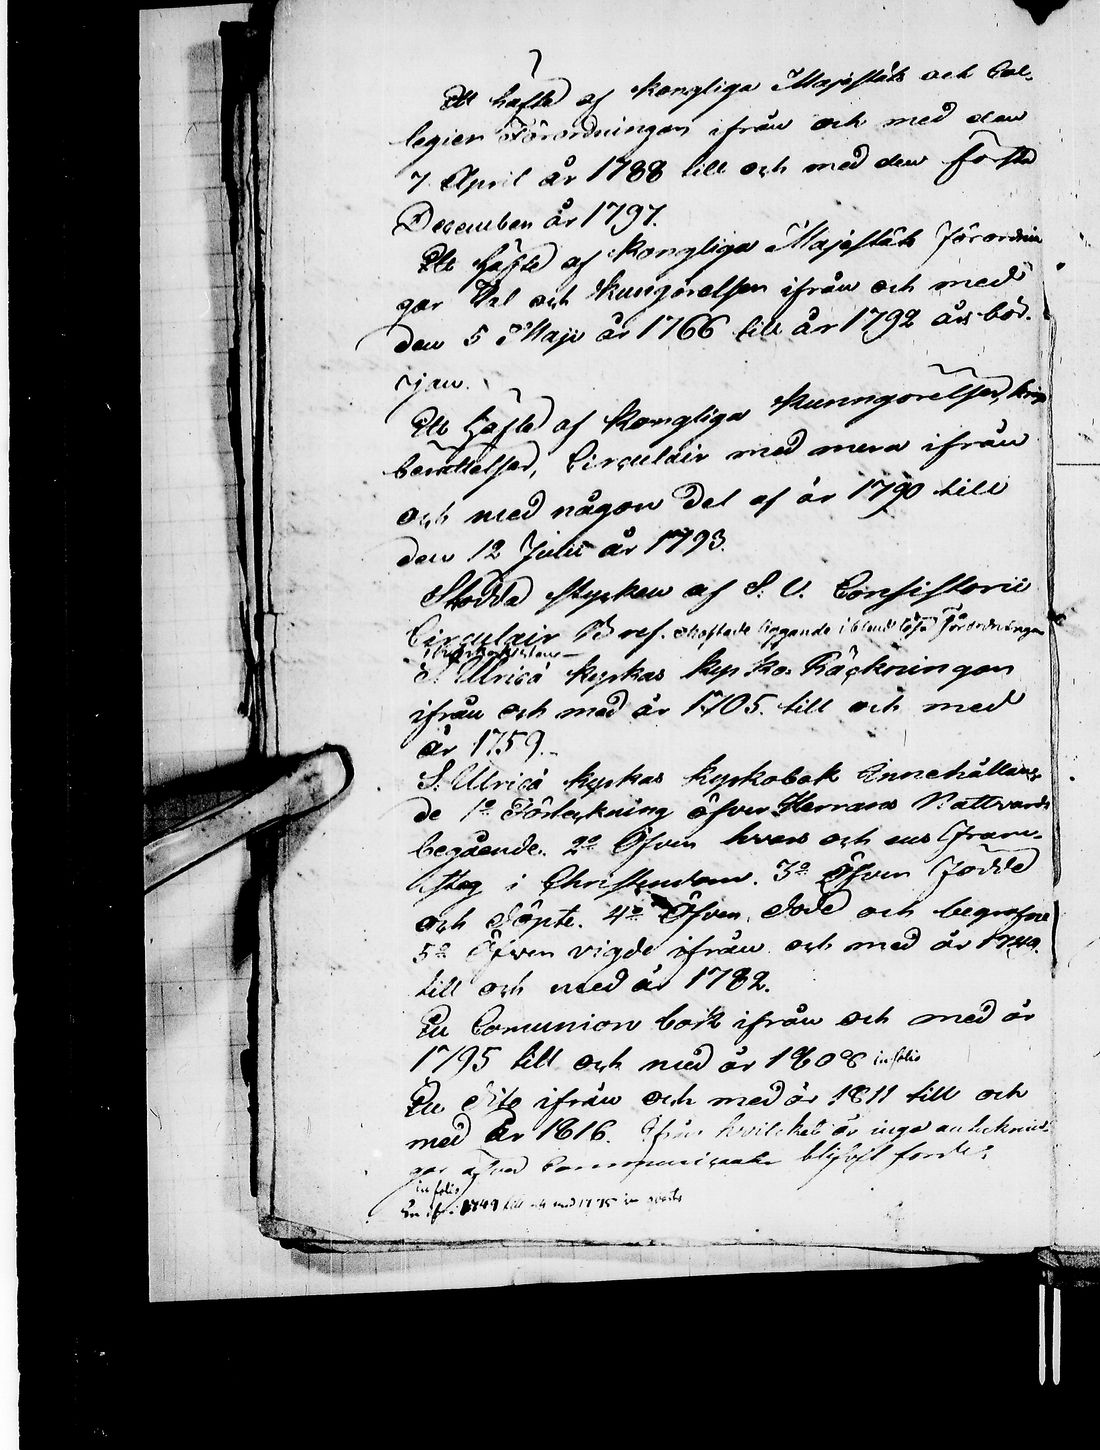 Ett häfte af Kongliga Majestäts och Col-
legiers Förordningar ifrån och med den
7 April år 1788 till och med den första
December år 1797.
Ett häfte af Kongliga Majestäts förordnin
gar och Kungörelser ifrån och med
den 5 Maji år 1766 till år 1792 års bör-
jan.
Ett häfte af Kongliga Kunngörelser,
berättelser, Circulair med mera ifrån
och med någon del af år 1790 till
den 12 Julii år 1793.
Stycken af S. V. Consistorii
Circulair Bref. ohäftade liggande ibland lösa Förordningar
S. Ulricä kyrkas Räckningar
ifrån och med år 1705. till och med
år 1759.
S. Ulricä kyrkas kyrkobok innehållan-
de 1o Förteckning öfver Herrans Nattvards
begående. 2o Öfver hvars och ens fram-
steg i Christendom. 3o Öfver födde
och döpte. 4o Öfver döde och begrafne
5o Öfver vigde ifrån och med år
till och med år 1782.
En Comunion bok ifrån och med år
1795 till och med år 1808 in folio
En dito ifrån och med år 1811 till och
med år 1816. ifrån hvilket år inga anteknin-
gar öfver Communicanter blifvit förde.
in folio
En ifr. 1749 till och med 1795 in qvarto